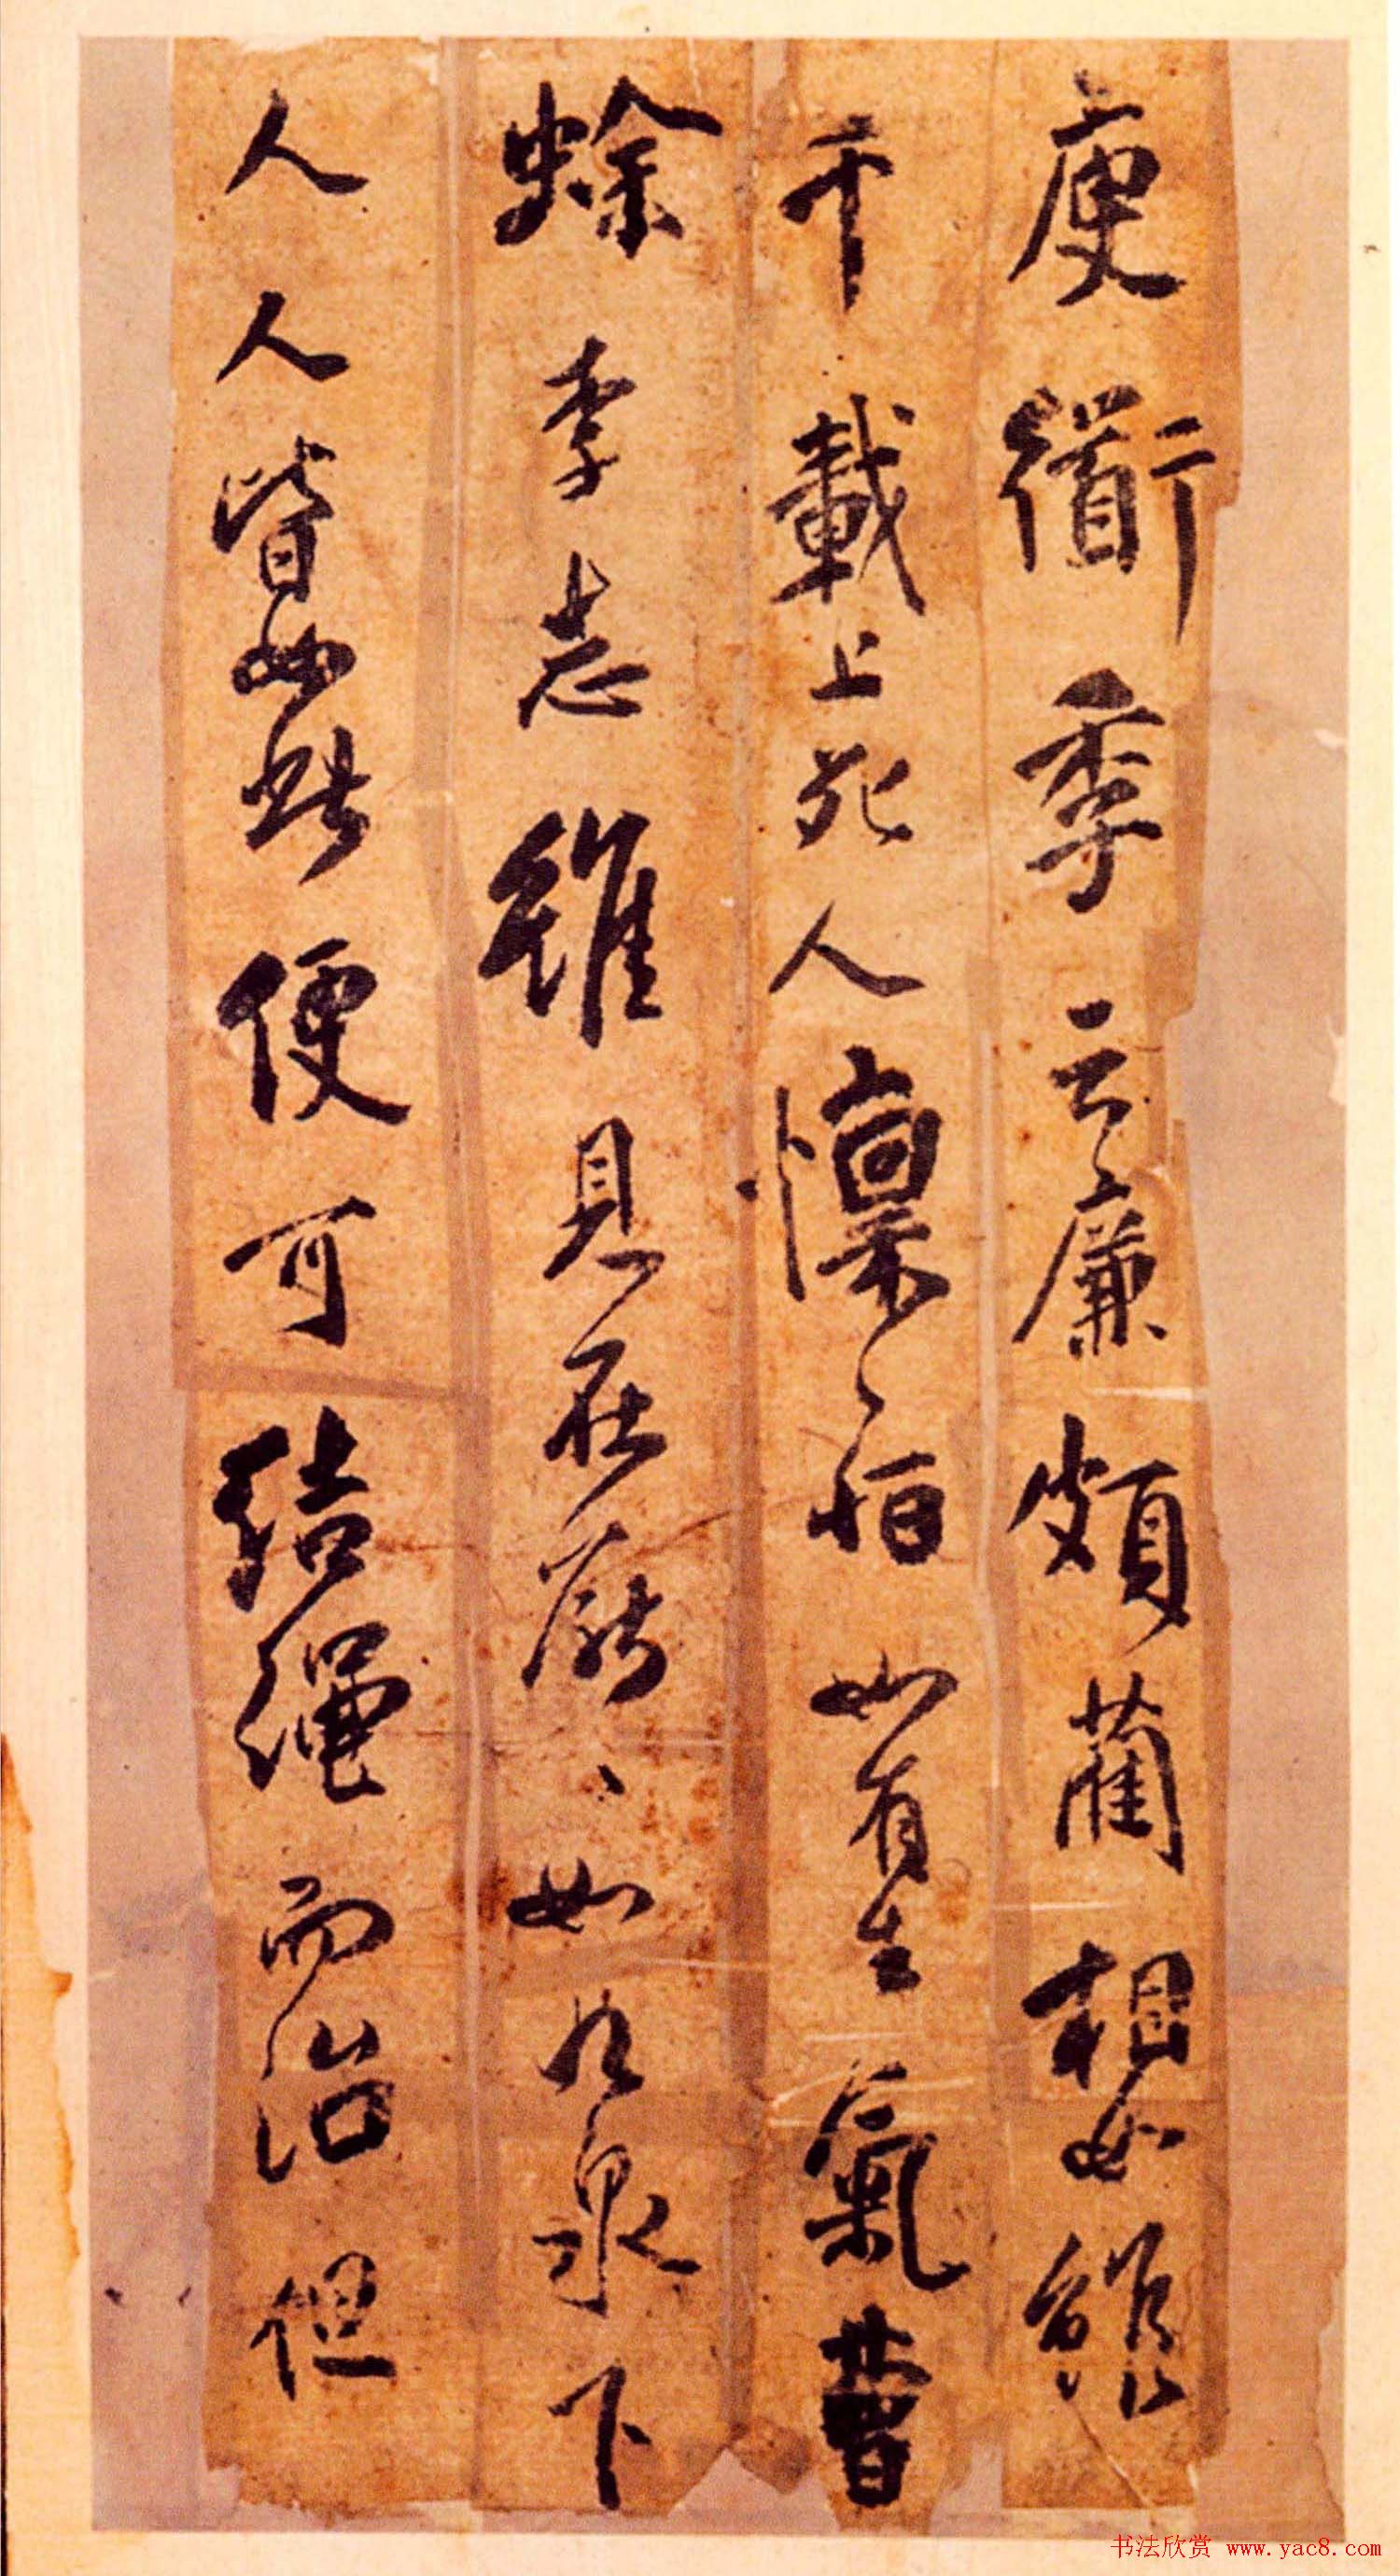 庾衜季云廉頗藺相如雖
千載上死人懍〻恒如有生氣曹
蜍李志雖見在厭〻如九泉下
人人皆如此便可結繩而治但
书法欣赏 www.yac8.com